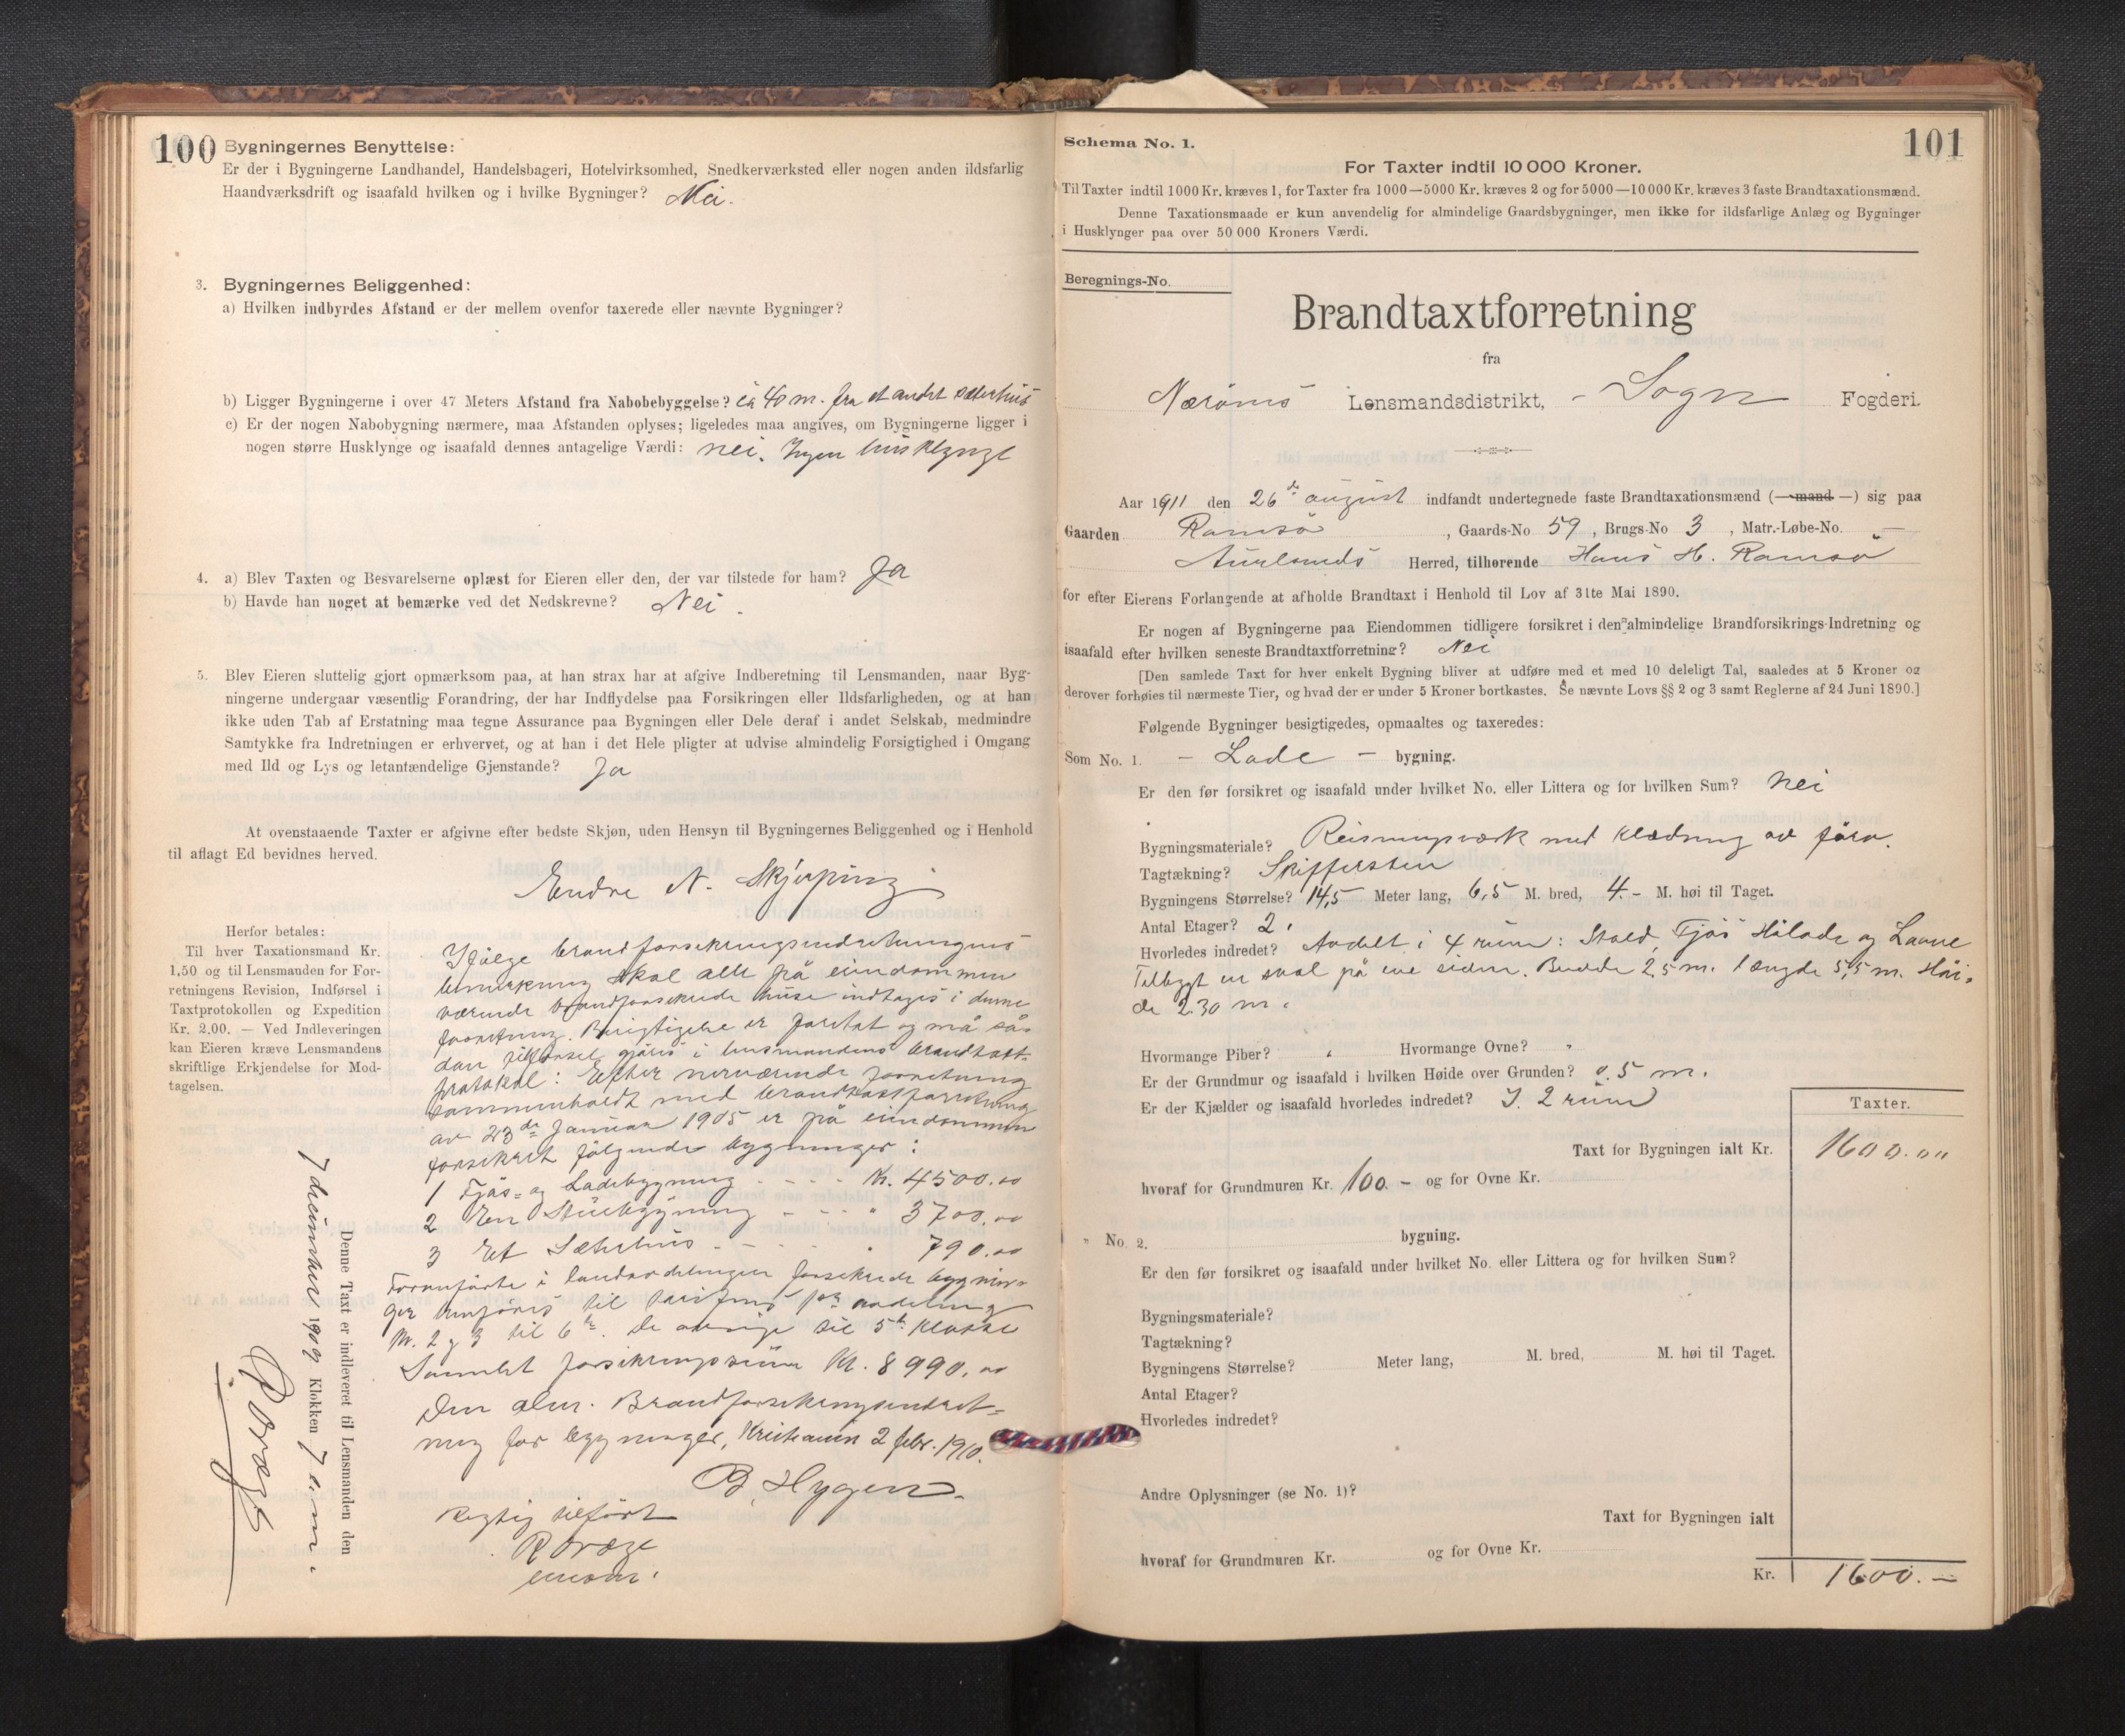 100
Bygningernes Benyttelse:
Er der i Bygningerne Landhandel, Handelsbageri, Hotelvirksomhed, Snedkerværksted eller nogen anden ildsfarlig
Haandværksdrift og isaafald hvilken og i hvilke Bygninger? Nei.
3. Bygningernes Beliggenhed:
a) Hvilken indbyrdes Afstand er der mellem ovenfor taxerede eller nævnte Bygninger?
b) Ligger Bygningerne i over 47 Meters Afstand fra Nabobebyggelse? ca 40 m. fra et andet sæterhus
c) Er der nogen Nabobygning nærmere, maa Afstanden oplyses; ligeledes maa angives, om Bygningerne ligger i
nogen større Husklynge og isaafald dennes antagelige Værdi: nei. Ingen husklynge
4. a) Blev Taxten og Besvarelserne oplæst for Eieren eller den, der var tilstede for ham? Ja
b) Havde han noget at bemærke ved det Nedskrevne? Nei.
5. Blev Eieren sluttelig gjort opmærksom paa, at han strax har at afgive Indberetning til Lensmanden, naar Byg-
ningerne undergaar væsentlig Forandring, der har Indflydelse paa Forsikringen eller Ildsfarligheden, og at han
ikke uden Tab af Erstatning maa tegne Assurance paa Bygningen eller Dele deraf i andet Selskab, medmindre
Samtykke fra Indretningen er erhvervet, og at han i det Hele pligter at udvise almindelig Forsigtighed i Omgang
med Ild og Lys og letantændelige Gjenstande? Ja
At ovenstaaende Taxter er afgivne efter bedste Skjøn, uden Hensyn til Bygningernes Beliggenhed og i Henhold
til aflagt Ed bevidnes herved.
Endre N. Skjerping
Herfor betales:
Til hver Taxationsmand Kr.
1,50 og til Lensmanden for For-
retningens Revision, Indførsel i
Taxtprotokollen og Expedition
Kr. 2,00. — Ved Indleveringen
kan Eieren kræve Lensmandens
skriftlige Erkjendelse for Mod-
tagelsen.
Ifølge brandforsikringsindretningens
bemerkning skal alle på eiendommen
værende brandforsikrede huse indtages i denne
forretning. Berigtigelse er foretat og må så-
dan tilførsel gjøres i lensmandens brandtakst-
protokol: Efter nærværende forretning
sammenholdt med brandtakstforretning
av 23de Januar 1905 er på eiendommen
forsikret følgende bygninger:
1 Fjøs- og Ladebygning - - - - Kr. 4500.00
2 En Stuebygning - - - - " 3700.00
3 Et Sæterhus - - - - " 790.00
Foranførte i landavdelingen forsikrede bygnin-
ger henføres til tariffens 1ste avdeling
Nr. 2 og 3 til 6te. De øvrige til 5te klasse
Samlet forsikringssum Kr. 8990.00
Den alm. Brandforsikringsindret-
ning for bygninger, Kristiania 2 febr. 1910.
B. Hygen.
Rigtig tilført
R Bræge
Denne Taxt er indleveret til Lensmanden den
7 december 1909 Klokken 7 e.m.
101
Schema No. 1.
For Taxter indtil 10 000 Kroner.
Til Taxter indtil 1000 Kr. kræves 1, for Taxter fra 1000—5000 Kr. kræves 2 og for 5000—10 000 Kr. kræves 3 faste Brandtaxationsmænd.
Denne Taxationsmaade er kun anvendelig for almindelige Gaardsbygninger, men ikke for ildsfarlige Anlæg og Bygninger
i Husklynger paa over 50 000 Kroners Værdi.
Beregnings-No.
Brandtaxtforretning
fra
Nærøens Lensmandsdistrikt, - Sogn Fogderi.
Aar 1911 den 26de august indfandt undertegnede faste Brandtaxationsmænd (—mand—) sig paa
Gaarden Ramsø, Gaards-No 59, Brugs-No 3, Matr.-Løbe-No. —
Aurlands Herred, tilhørende Hans H. Ramsø
for efter Eierens Forlangende at afholde Brandtaxt i Henhold til Lov af 31te Mai 1890.
Er nogen af Bygningerne paa Eiendommen tidligere forsikret i den almindelige Brandforsikrings-Indretning og
isaafald efter hvilken seneste Brandtaxtforretning? Nei
[Den samlede Taxt for hver enkelt Bygning bliver at udføre med et med 10 deleligt Tal, saaledes at 5 Kroner og
derover forhøies til nærmeste Tier, og hvad der er under 5 Kroner bortkastes. Se nævnte Lovs §§ 2 og 3 samt Reglerne af 24 Juni 1890.]
Følgende Bygninger besigtigedes, opmaaltes og taxeredes:
Som No. 1. - Lade - bygning.
Er den før forsikret og isaafald under hvilket No. eller Littera og for hvilken Sum? Nei
Bygningsmateriale? Reisningsværk med klædning av furu.
Tagtækning? Skifersten
Bygningens Størrelse? 14,5 Meter lang, 6,5 M. bred, 4.- M. høi til Taget.
Antal Etager? 2.
Hvorledes indredet? Avdelt i 4 rum: Stald, Fjøs Hølade og Laave
Tilbygt en sval på ene siden. Bredde 2,5 m. længde 5,5 m. Høi-
de 2.30 m.
Hvormange Piber? " Hvormange Ovne? "
Er der Grundmur og isaafald i hvilken Høide over Grunden? 0.5 m.
Er der Kjælder og isaafald hvorledes indredet? I 2 rum
Taxter.
Taxt for Bygningen ialt Kr. 1600.00
hvoraf for Grundmuren Kr. 100.- og for Ovne Kr.
" No. 2. bygning.
Er den før forsikret og isaafald under hvilket No. eller Littera og for hvilken Sum?
Bygningsmateriale?
Tagtækning?
Bygningens Størrelse? Meter lang, M. bred, M. høi til Taget.
Antal Etager?
Hvorledes indredet?
Andre Oplysninger (se No. 1)?
Taxt for Bygningen ialt
hvoraf for Grundmuren Kr. og for Ovne Kr.
Kr. 1600.-